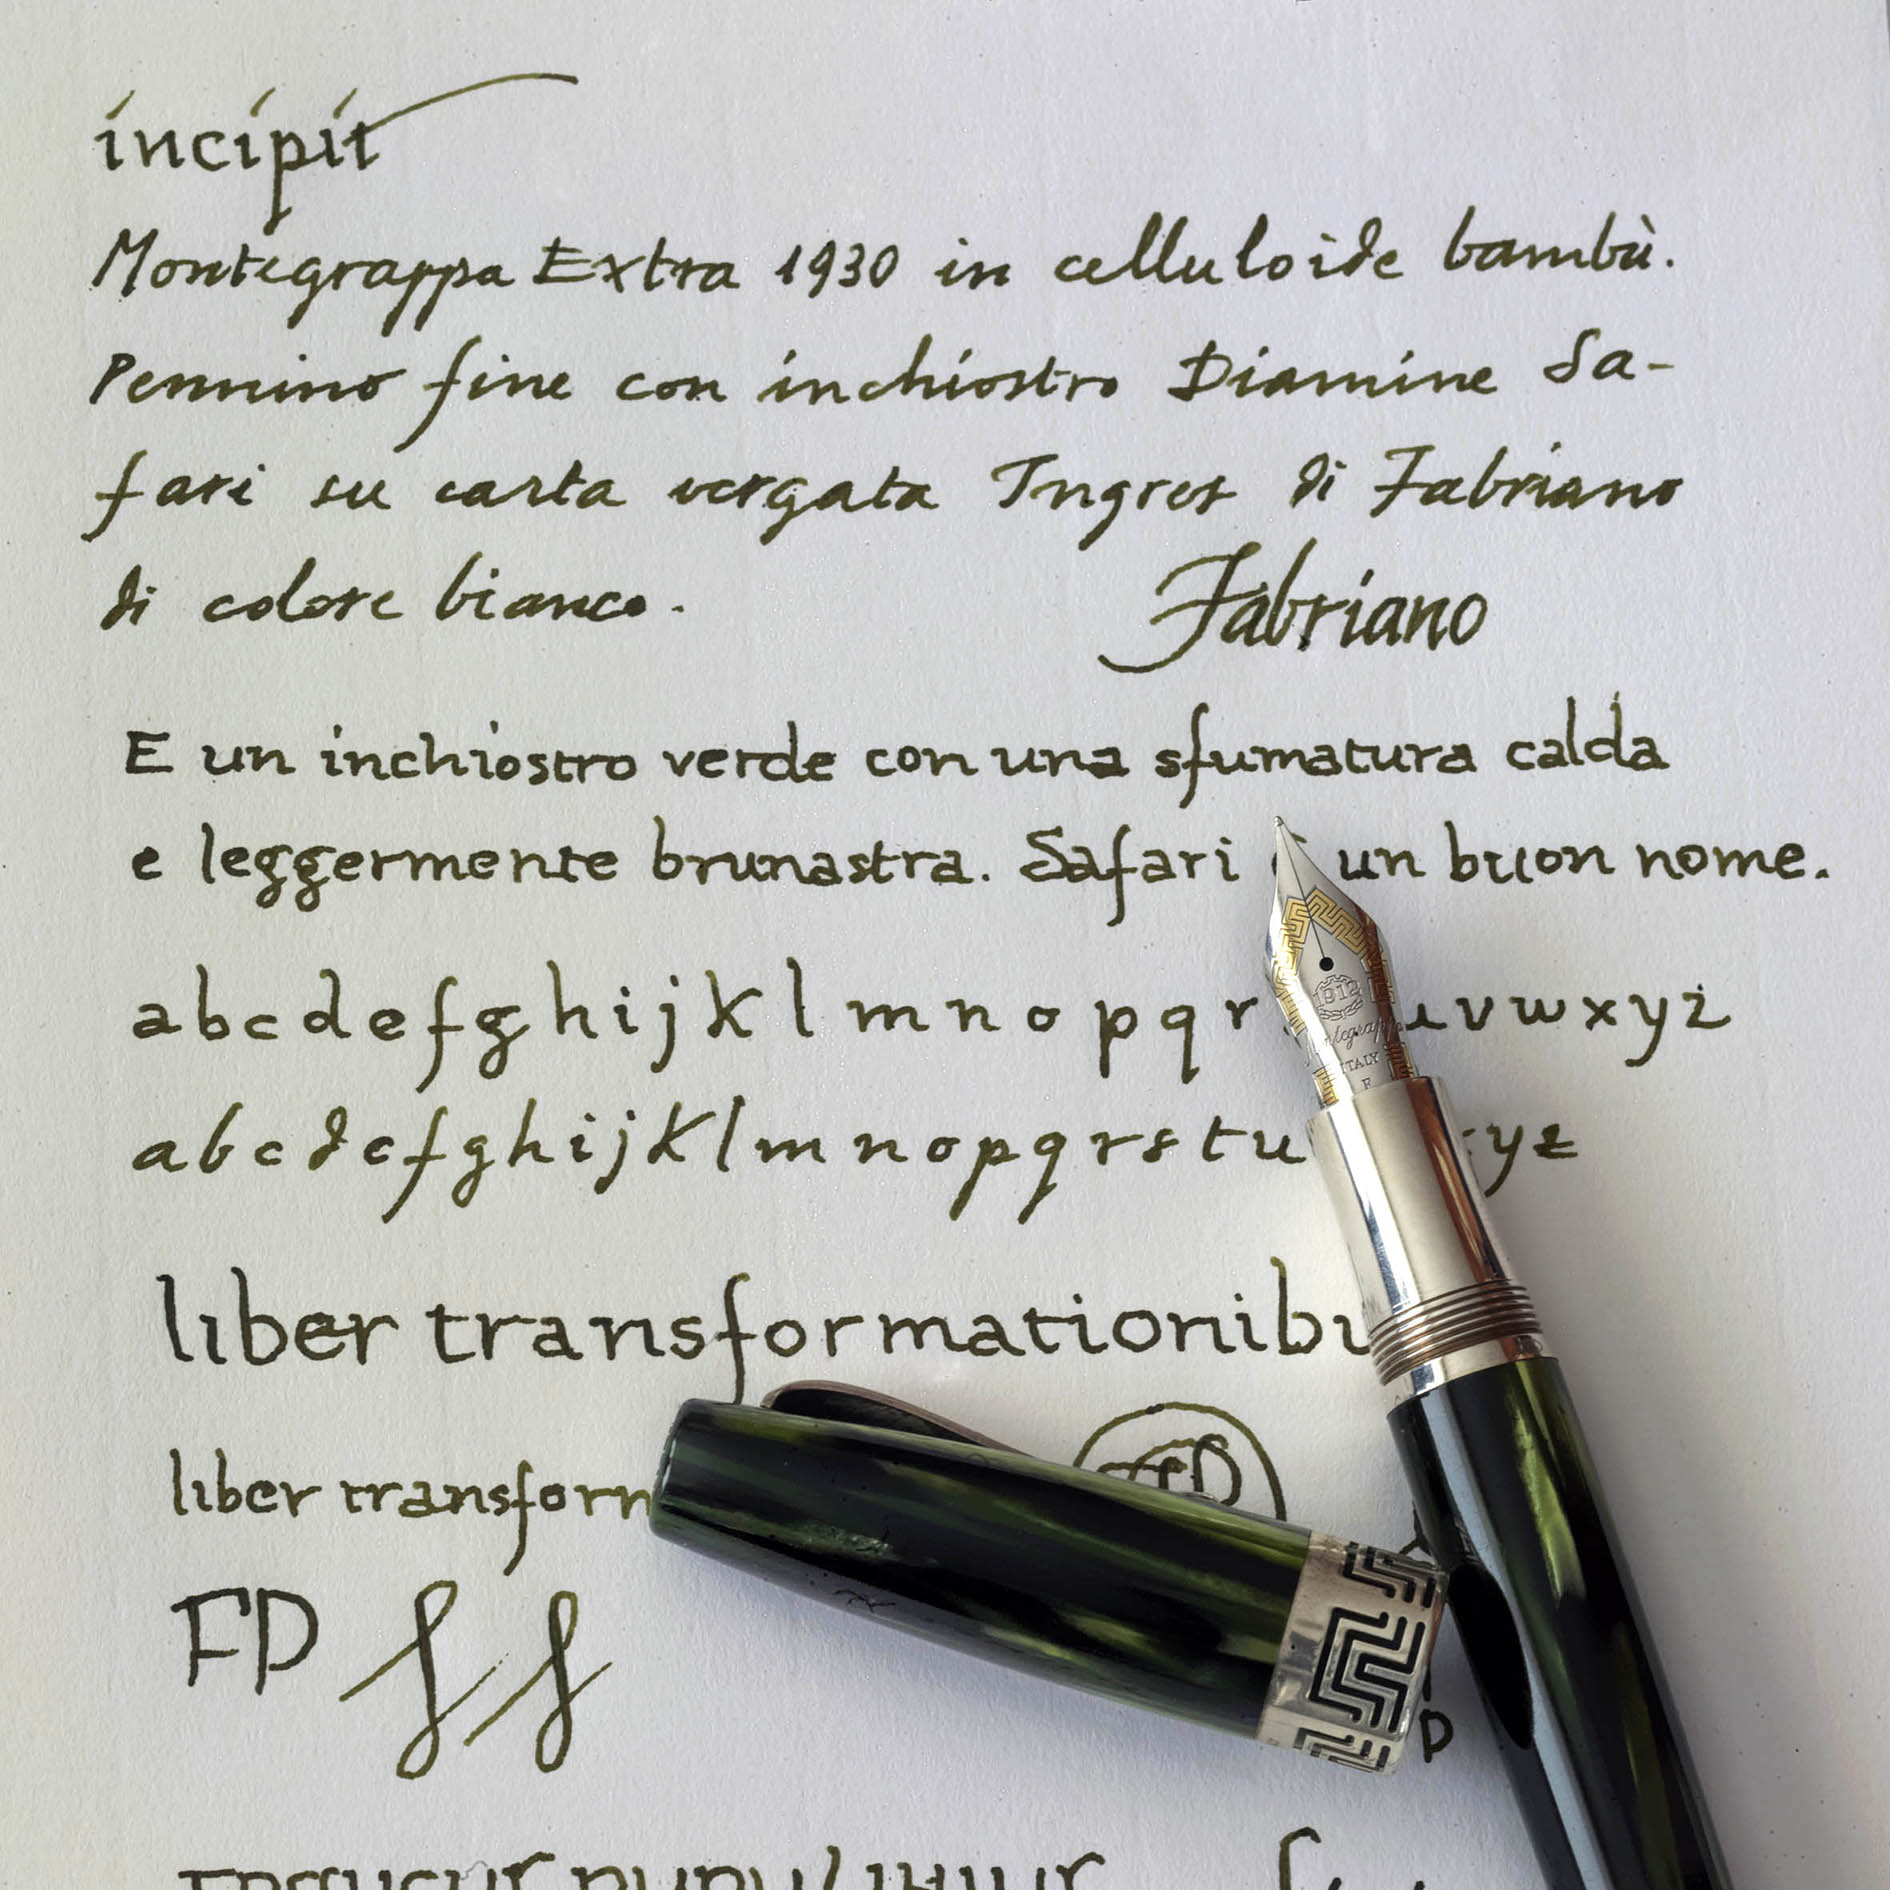 incipit
Montegrappa Extra 1930 in celluloide bambù.
Pennino fine con inchiostro Diamine Sa-
fari su carta vergata Ingres di Fabriano
di colore bianco.
Fabriano
E un inchiostro verde con una sfumatura calda
e leggermente brunastra. Safari un buon nome.
abcdefghijklmnopqr vwxyz
abcdefghijklmnopqrstu yz
1912
Montegrappa
ITALY
F
liber transformationibu
liber transform
FD
D